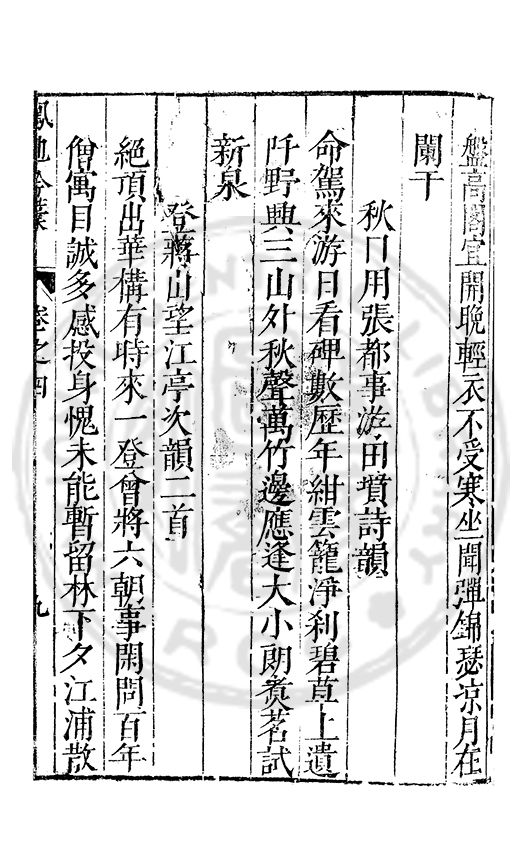 盤高閣宜開晚輕衣不受寒坐聞彈錦瑟凉月在
闌干
秋日用張都事游田墳詩韻
命駕來游日看碑數歷年紺雲籠淨刹碧草上遺
阡野興三山外秋聲萬竹邊應逢大小朗煑茗試
新泉
登蔣山望江亭次韻二首
絕頂出華構有時來一登會將六朝事閑問百年
僧寓目誠多感投身愧未能暫留林下夕江浦散
鳳池吟藁
卷之四
九